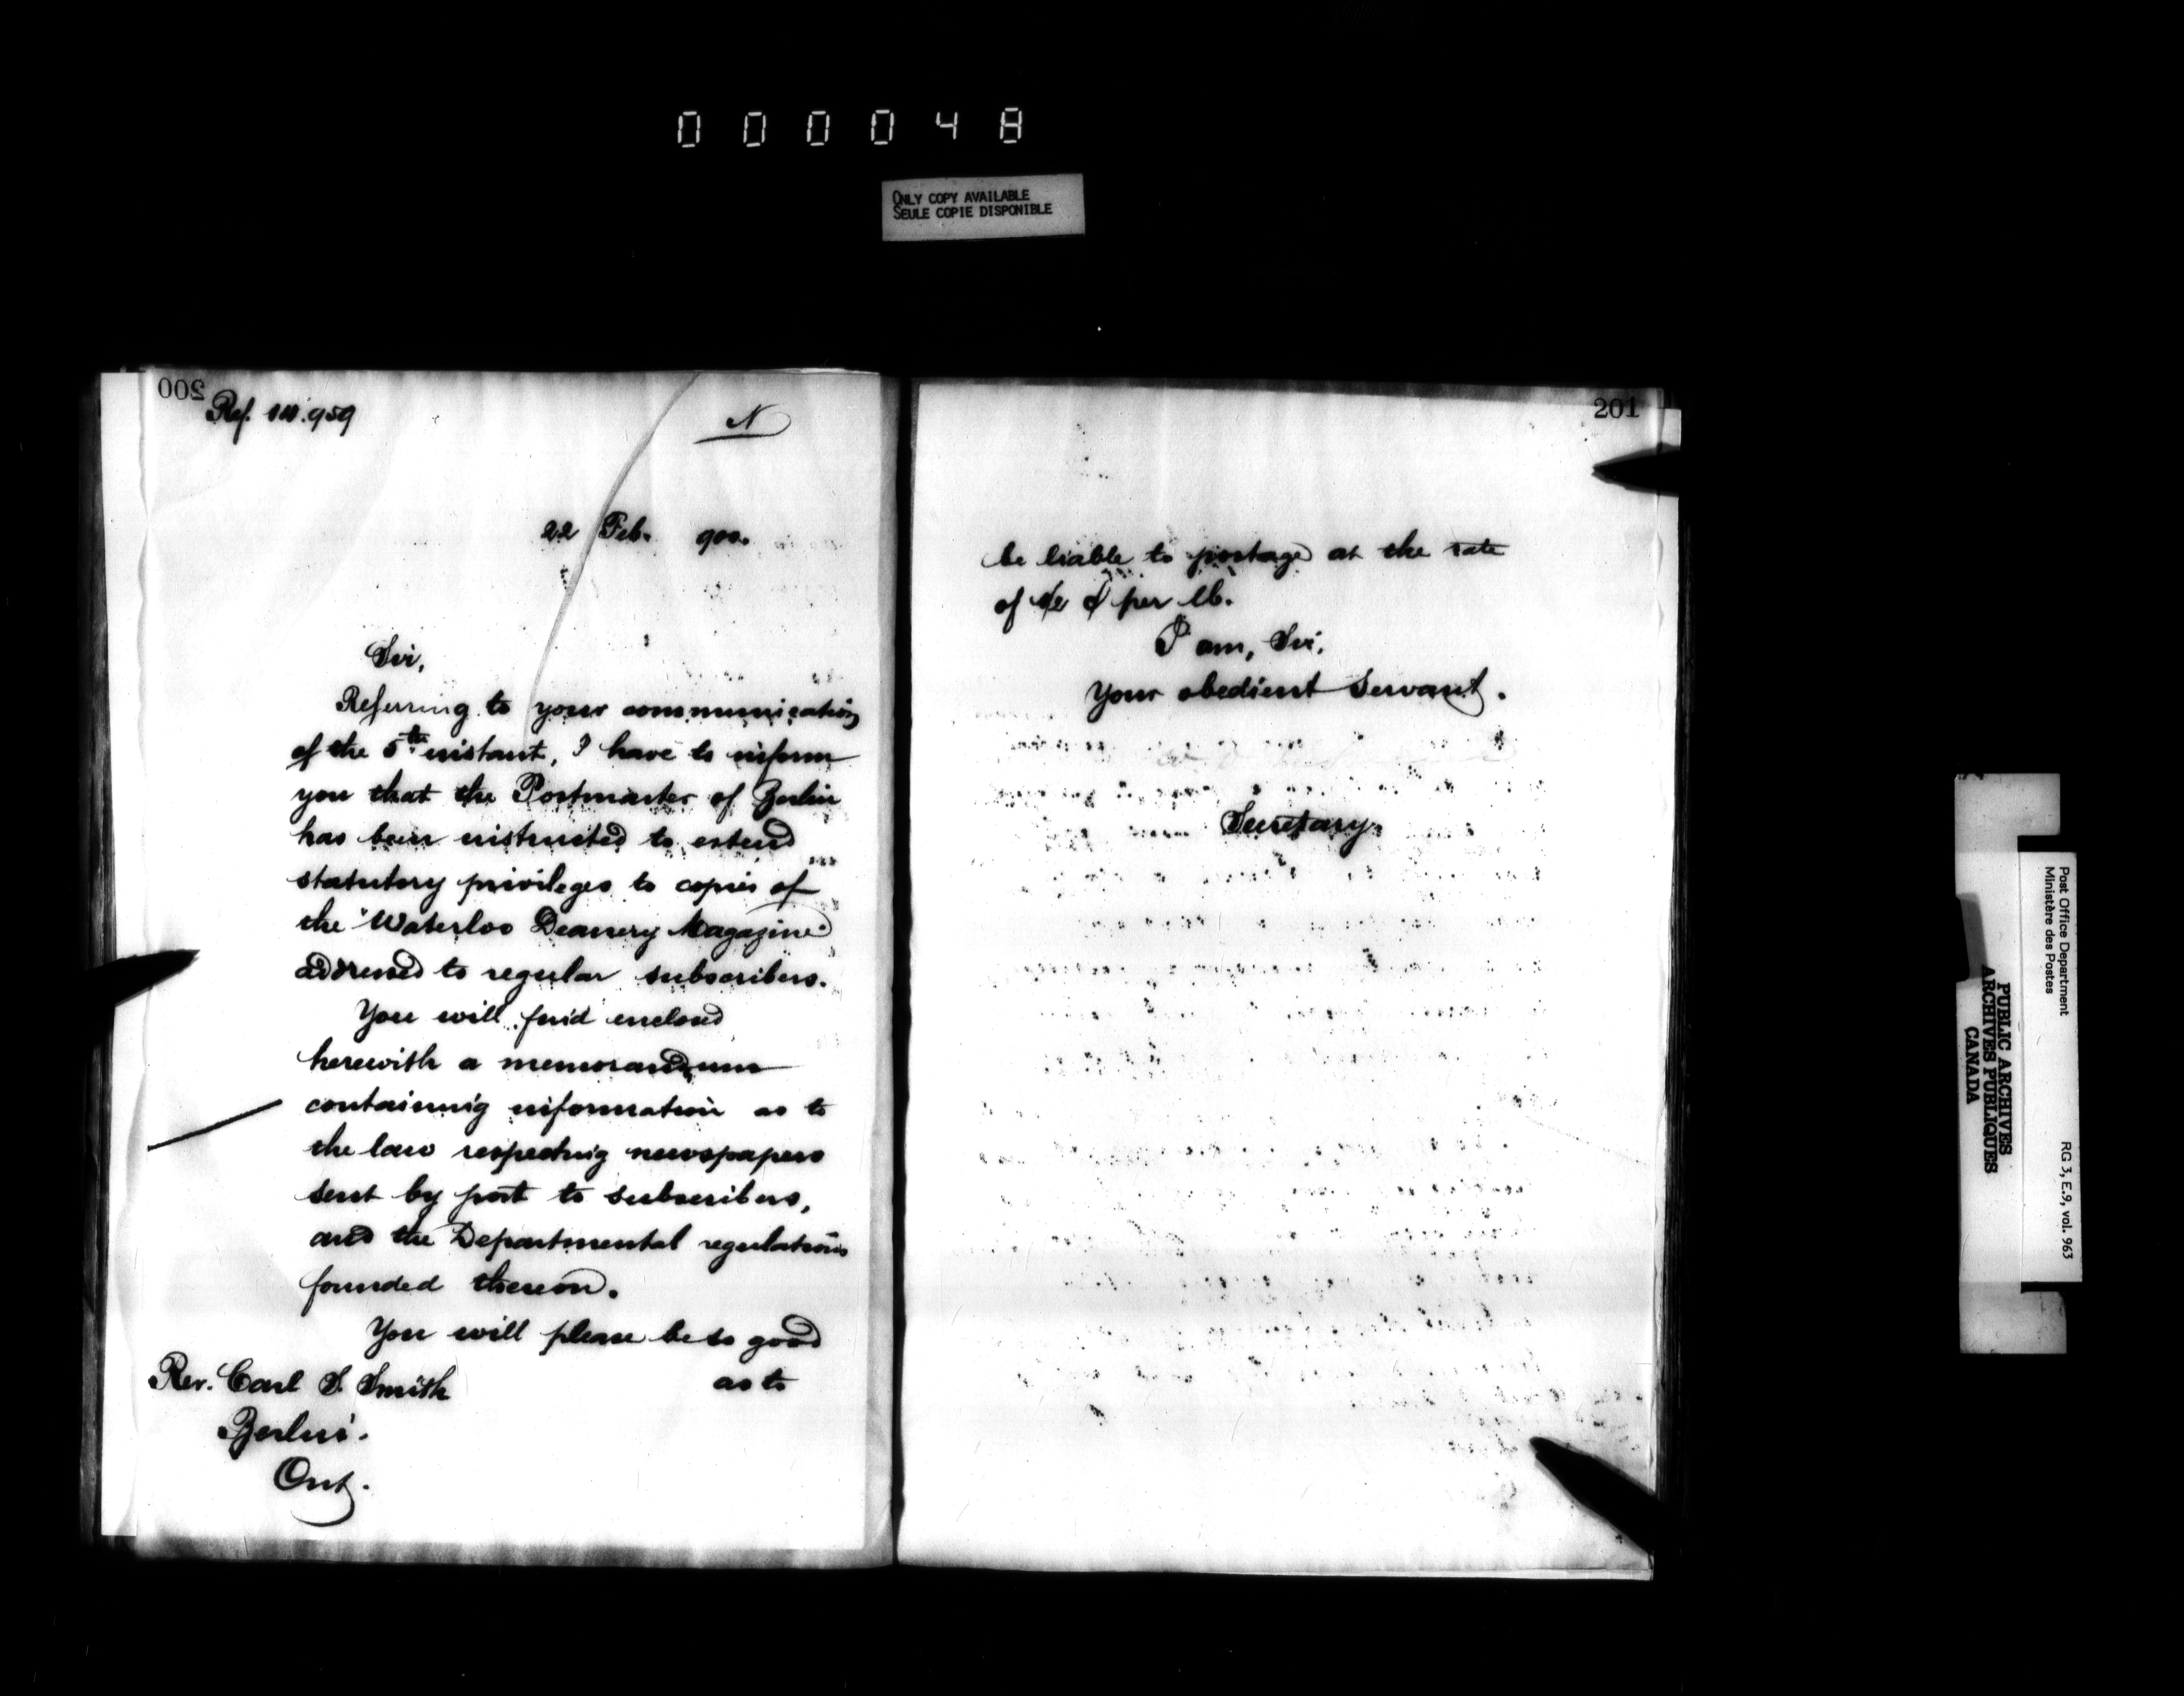 000048
ONLY COPY AVAILABLE
SEULE COPIE DISPONIBLE
200
Ref. 959
N
22 Feb. 900.
Sir,
Referring to your communication
of the 5th instant, I have to inform
you that the Postmaster of Berlin
has been instructed to extend
statutory privileges to copies of
the "Waterloo Deanery Magazine"
addressed to regular subscribers.
You will find enclosed
herewith a memorandum
containing information as to
the law respecting newspapers
sent by post to subscribers,
and the Departmental regulations
founded thereon.
You will please be so good
as to
Rev. Carl S. Smith
Berlin.
Ont.
201
be liable to postage at the rate
of per lb.
I am, Sir,
Your obedient Servant.
Secretary.
Post Office Department
Ministère des Postes
RG 3, E.9, vol. 963
PUBLIC ARCHIVES
ARCHIVES PUBLIQUES
CANADA